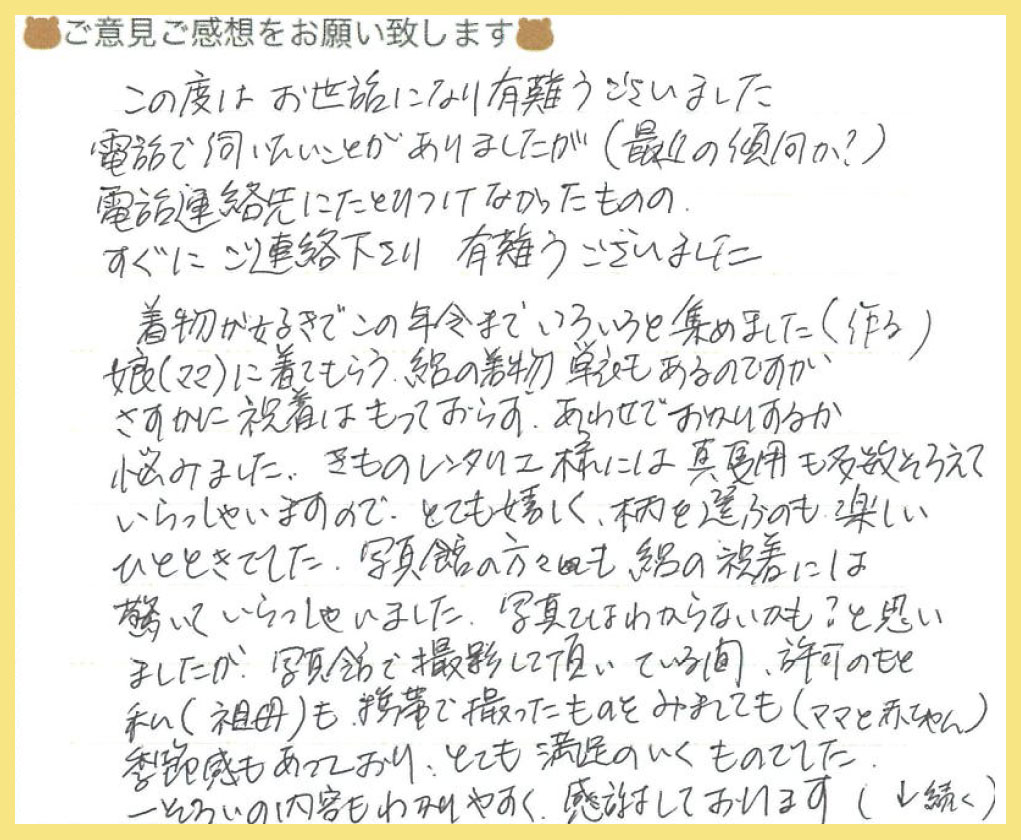 ご意見ご感想をお願い致します
この度は お世話になり有難うございました
電話で伺いたいことがありましたが(最近の傾向か?)
電話連絡先にたどりつけなかったものの、
すぐに ご連絡下さり 有難うございました
着物が好きでこの年令まで いろいろと集めました(作る)
娘(ママ)に着てもらう、絽の着物 単衣もあるのですが
さすがに祝着はもっておらず、あわせでお借りするか
悩みました、きものレンタリエ様には 真夏用も多数そろえて
いらっしゃいますので、とても嬉しく、柄を選ぶのも楽しい
ひとときでした、写真館の方々も 絽の祝着には
驚いていらっしゃいました、写真ではわからないかも?と思い
ましたが、写真館で撮影して頂いている間、許可のもと
私(祖母)も、携帯で撮ったものをみましても(ママと赤ちゃん)
季節感もあっており、とても満足のいくものでした、
一そろいの内容もわかりやすく、感謝しております (↓続く)